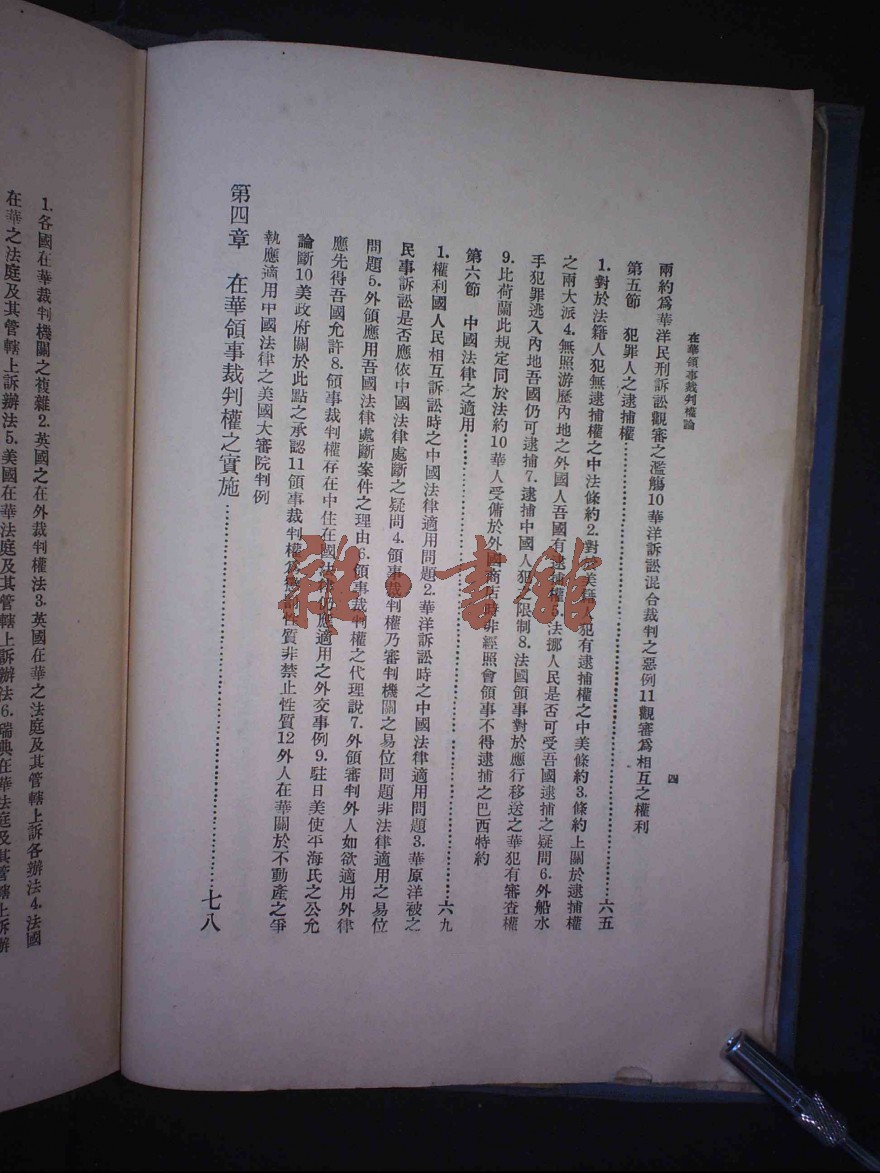 在華領事裁判權論
四
兩約爲華洋民刑訴訟觀審之濫觴10華洋訴訟混合裁判之惡例11觀審爲相互之權利
第五節 犯罪人之逮捕權……六五
1.對於法籍人犯無逮捕權之中法條約2.對於美籍人犯有逮捕權之中美條約3.條約上關於逮捕權
之兩大派4.無照游歷內地之外國人吾國有逮捕權5.法挪人民是否可受吾國逮捕之疑問6.外船水
手犯罪逃入內地吾國仍可逮捕7.逮捕中國人犯之限制8.法國領事對於應行移送之華犯有審查權
9.比荷蘭此規定同於法約10華人受傭於外國商店時非經照會領事不得逮捕之巴西特約
第六節 中國法律之適用……六九
1.權利國人民相互訴訟時之中國法律適用問題2.華洋訴訟時之中國法律適用問題3.華原洋被之
民事訴訟是否應依中國法律處斷之疑問4.領事裁判權乃審判機關之易位問題非法律適用之易位
問題5.外領應用吾國法律處斷案件之理由6.領事裁判權之代理說7.外領審判外人如欲適用外律
應先得吾國允許8.領事裁判權存在中住在國法律仍應適用之外交事例9.駐日美使平海氏之公允
論斷10美政府關於此點之承認11領事裁判權爲 性質非禁止性質12外人在華關於不動產之爭
執應適用中國法律之美國大審院判例
第四章 在華領事裁判權之實施……七八
1.各國在華裁判機關之複雜2.英國之在外裁判權法3.英國在華之法庭及其管轄上訴各辦法4.法國
在華之法庭及其管轄上訴辦法5.美國在華法庭及其管轄上訴辦法6.瑞典在華法庭及其管轄上訴辦
雜·書館